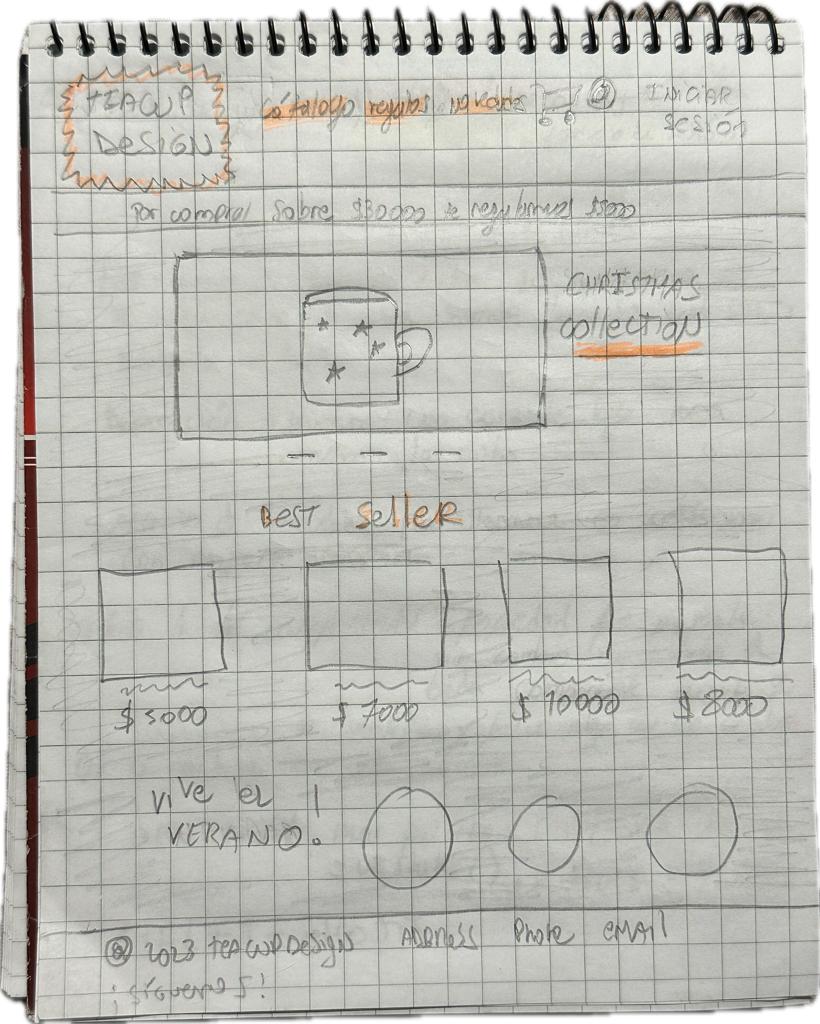 TEACUP
DESIGN
Cátalogo regalos navadeños
INICIAR
SESIÓN
Por comprar sobre $30000 te regalamos $5000
CHRISTMAS
collection
BEST seller
$5000 $7000 $10000 $8000
VIVE EL
VERANO!
© 2023 TEACUP Designs ADDRESS Phone EMAIL
¡siguenos!